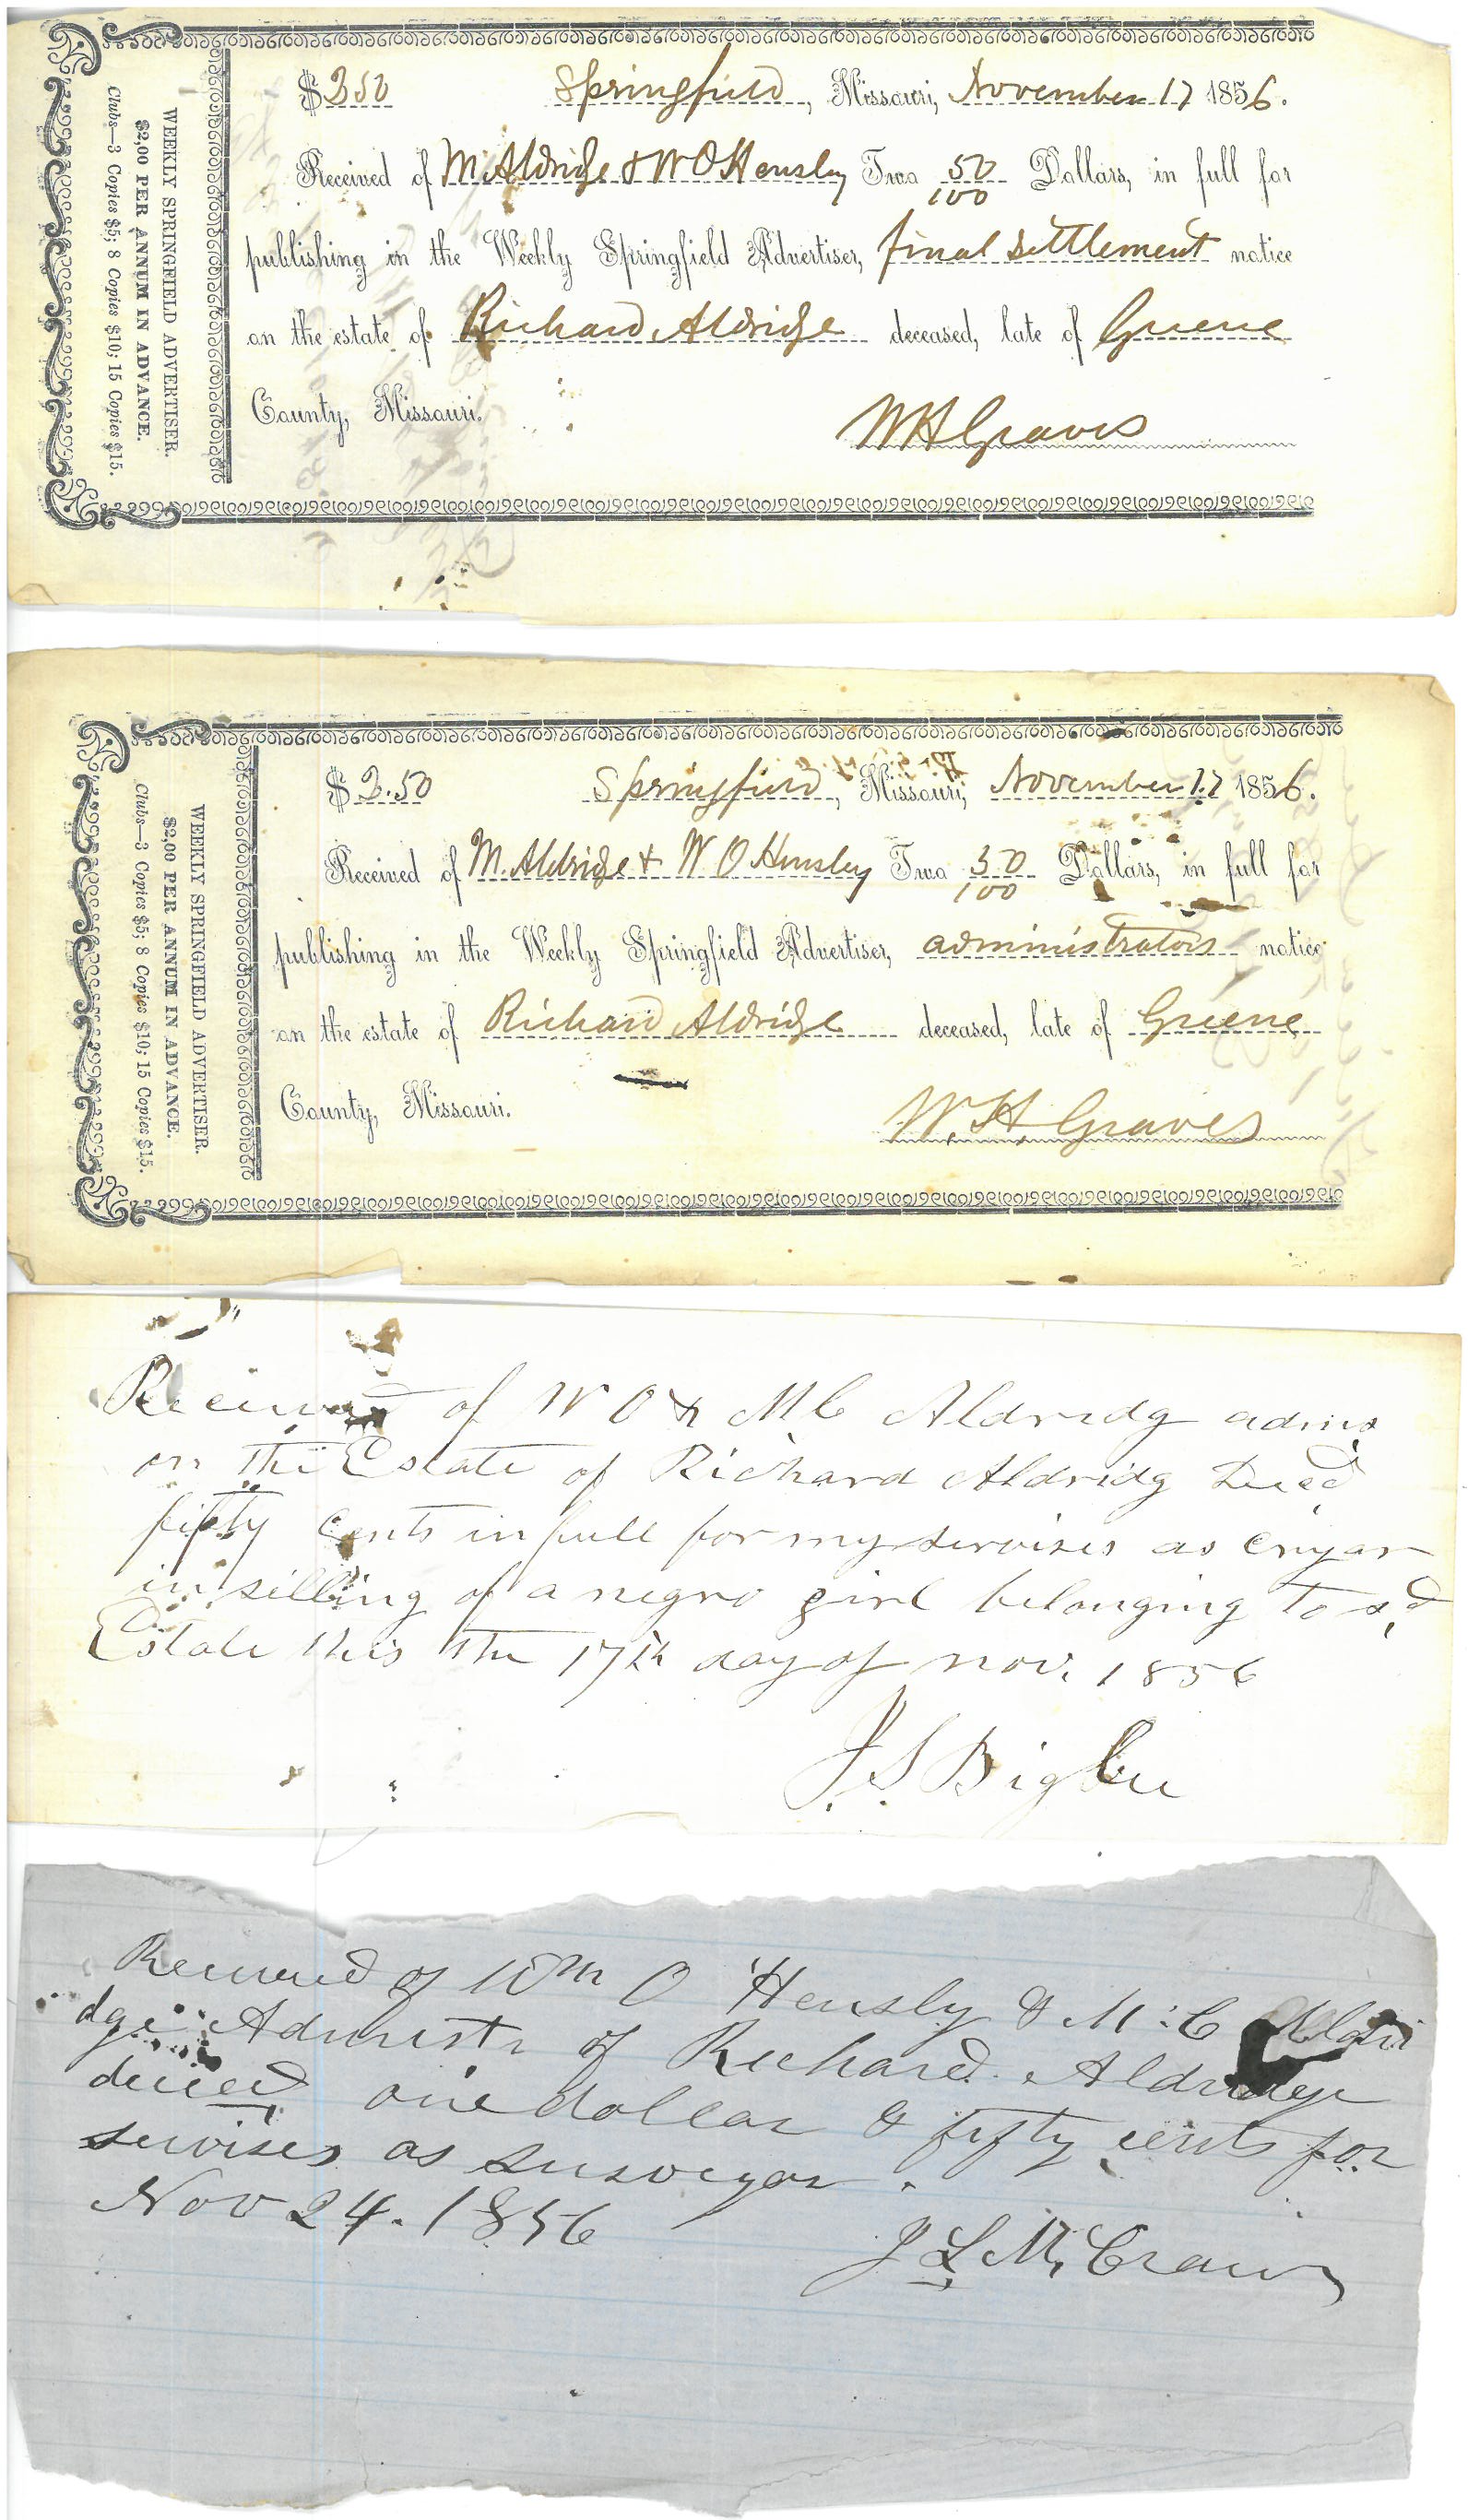 WEEKLY SPRINGFIELD ADVERTISER.
$2,00 PER ANNUM IN ADVANCE.
Clubs—3 Copies $5; 8 Copies $10; 15 Copies $15.
$250 Springfield, Missouri, November 17 1856.
Received of M. Aldridge & W O Hensley Two 50/100 Dollars, in full for
publishing in the Weekly Springfield Advertiser, final settlement notice
on the estate of Richard Aldridge deceased, late of Greene
County, Missouri.
W H Graves
WEEKLY SPRINGFIELD ADVERTISER.
$2,00 PER ANNUM IN ADVANCE.
Clubs—3 Copies $5; 8 Copies $10; 15 Copies $15.
$2.50 Springfield, Missouri, November 17 1856.
Received of M. Aldridge & W O Hensley Two 50/100 Dollars, in full for
publishing in the Weekly Springfield Advertiser, administrators notice
on the estate of Richard Aldridge deceased, late of Greene
County, Missouri.
W. H. Graves
Received of W O & M C Aldridg adms
on the Estate of Richard Aldridg Decd
fifty Cents in full for my servises as cryar
in silling of a negro girl belonging to sd
Estate this the 17th day of nov. 1856
J. S. Bigbee
Received of Wm O Hensly & M. C Aldri
dge Administr of Richard Aldridge
deceed one dollar & fifty cents for
servises as surveyor.
Nov 24. 1856
J L McCraw